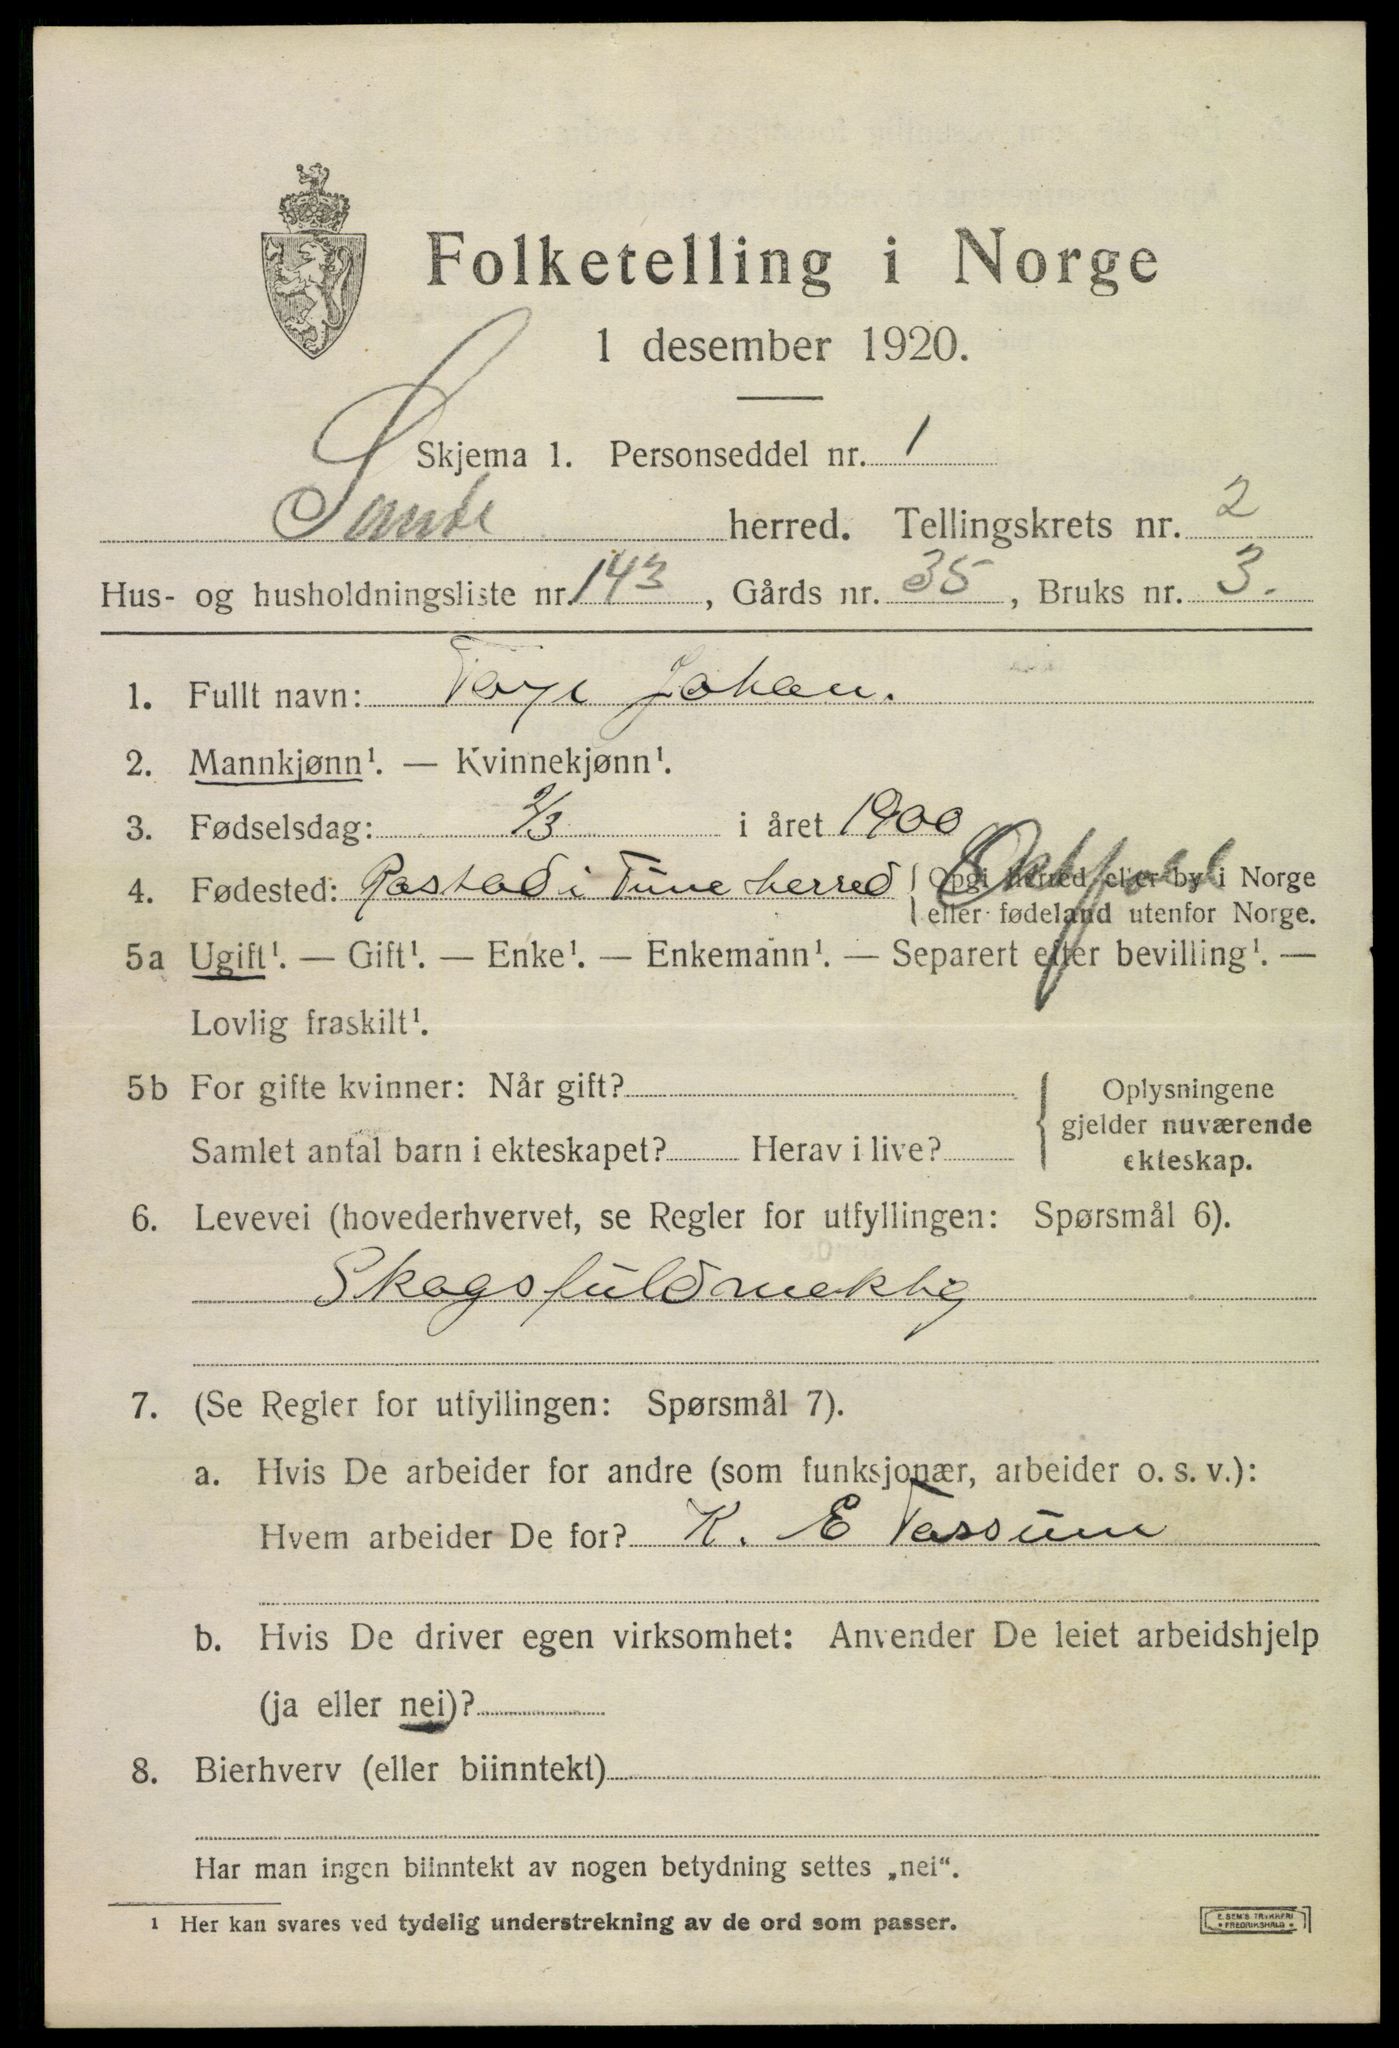 Folketelling i Norge
1 desember 1920.
Skjema 1. Personseddel nr. 1
Sande herred. Tellingskrets nr. 2
Hus- og husholdningsliste nr. 143, Gårds nr. 35, Bruks nr. 3.
1. Fullt navn: Johan.
2. Mannkjønn¹. — Kvinnekjønn¹.
3. Fødselsdag: 2/3 i året 1900
4. Fødested: Rostad i Tune herred { Opgi herred eller by i Norge
eller fødeland utenfor Norge.
Østfold
5a Ugift¹. — Gift¹. — Enke¹. — Enkemann¹. — Separert efter bevilling¹. —
Lovlig fraskilt¹.
5b For gifte kvinner: Når gift?
Samlet antal barn i ekteskapet? Herav i live?
{ Oplysningene
gjelder nuværende
ekteskap.
6. Levevei (hovederhvervet, se Regler for utfyllingen: Spørsmål 6).
Skogsfuldmektig
7. (Se Regler for utfyllingen: Spørsmål 7).
a. Hvis De arbeider for andre (som funksjonær, arbeider o. s. v.):
Hvem arbeider De for? K. E
b. Hvis De driver egen virksomhet: Anvender De leiet arbeidshjelp
(ja eller nei)?
8. Bierhverv (eller biinntekt)
Har man ingen biinntekt av nogen betydning settes „nei“.
1 Her kan svares ved tydelig understrekning av de ord som passer.
E. SEM'S TRYKKERI
• FREDRIKSHALD •